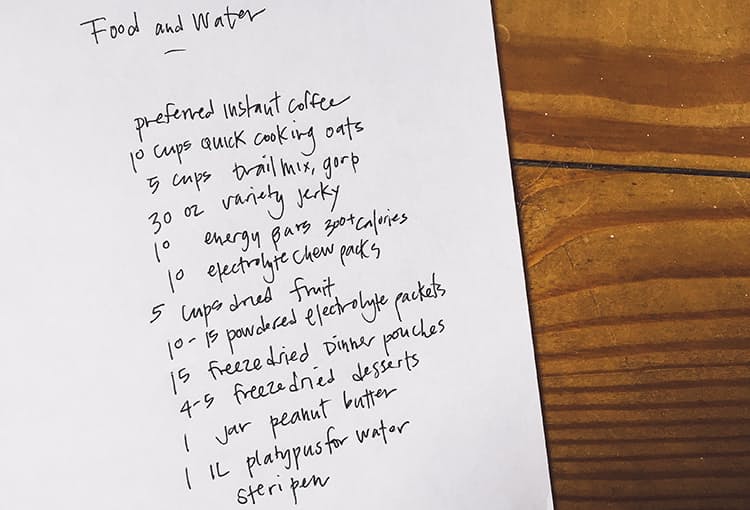 Food and Water
preferred instant coffee
10 cups quick cooking oats
5 cups trail mix, gorp
30 oz variety jerky
10 energy bars 300+calories
10 electrolyte chew packs
5 cups dried fruit
10-15 powdered electrolyte packets
15 freeze dried Dinner pouches
4-5 freeze dried desserts
1 jar peanut butter
1 1L platypus for water
steri pen